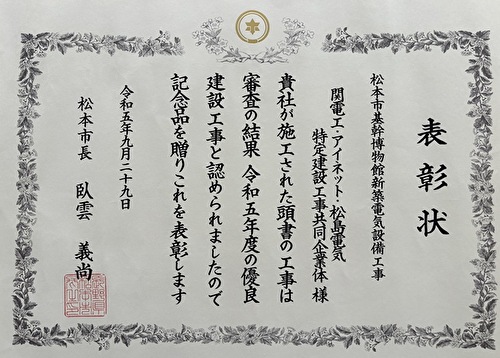 表彰状
松本市基幹博物館新築電気設備工事
関電工・アイネット・松島電気
特定建設工事共同企業体 様
貴社が施工された頭書の工事は
審査の結果 令和五年度の優良
建設工事と認められましたので
記念品を贈りこれを表彰します
令和五年九月二十九日
松本市長 臥雲 義尚